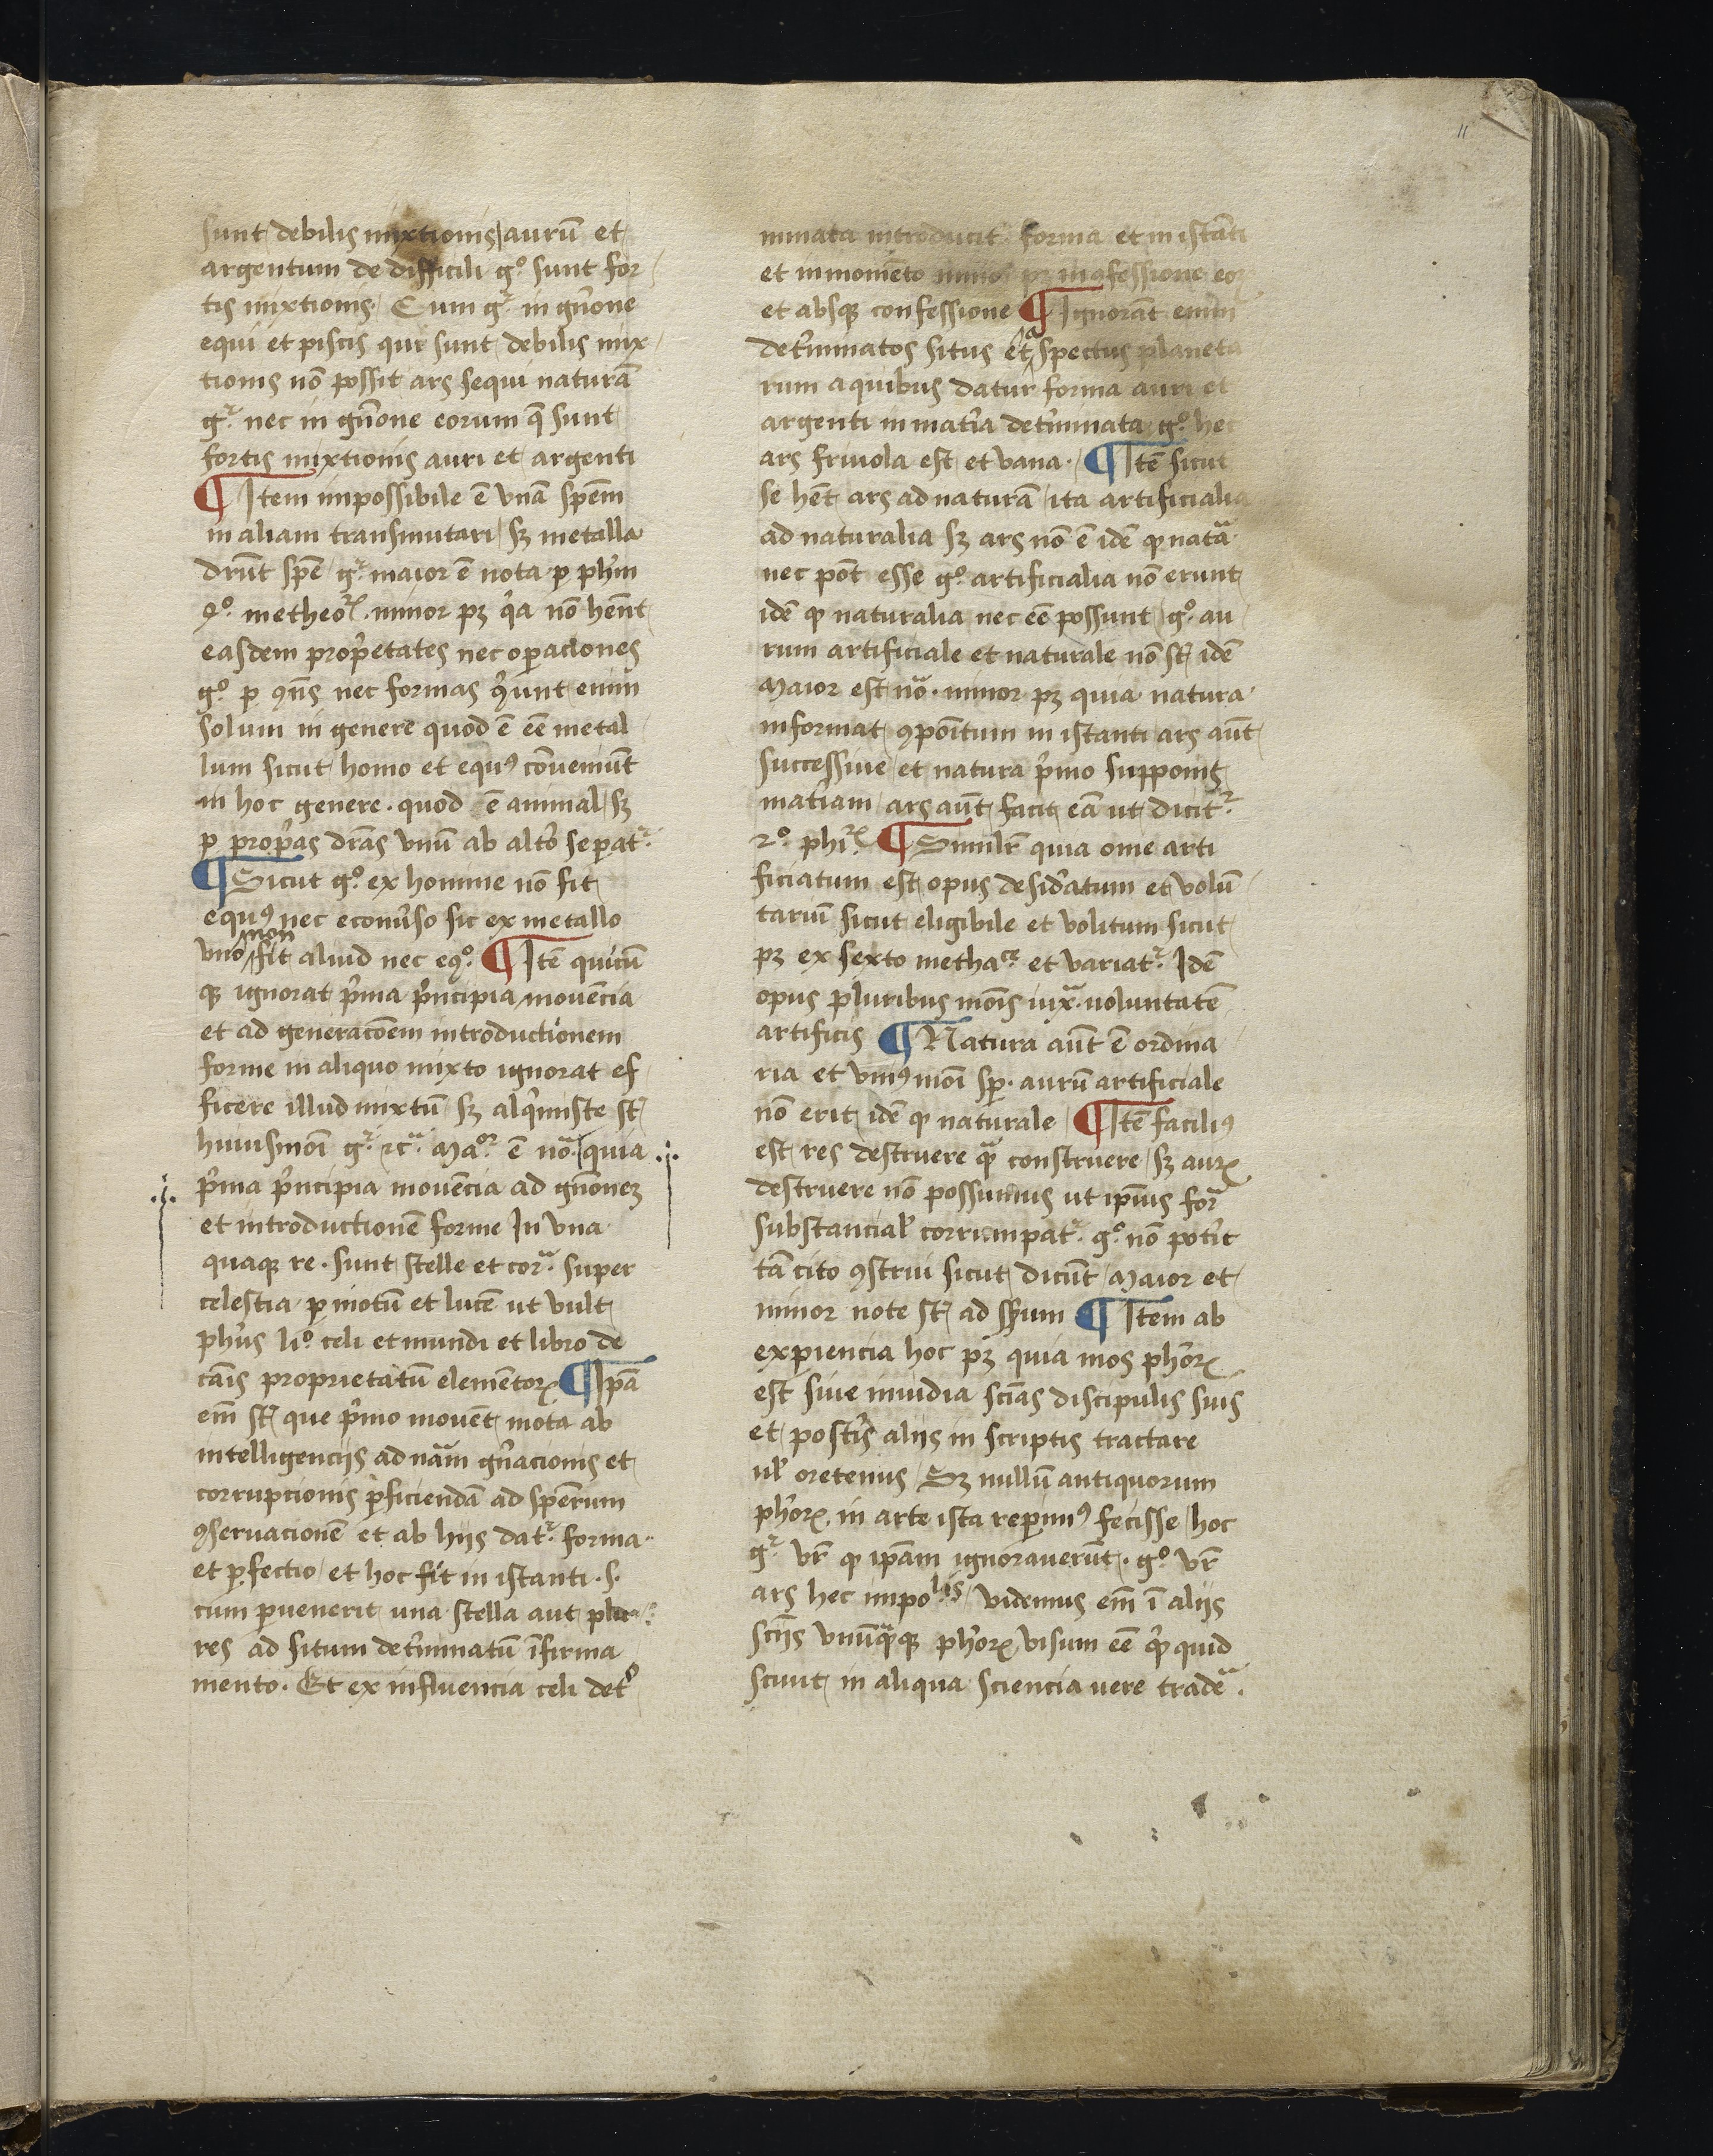 11
sunt debilis mixtionis aurū et
argentum de difficili gͦ sunt for
tis mixtionis / Cum gͬ in gn̄one
equi et piscis qui sunt debilis mix
tionis nō possit ars sequi naturā
gͬ nec in gn̄one eorum q̄ sunt
fortis mixtionis auri et argenti
¶ Item impossibile ē vnā spēm
in aliam transmutari / sꝫ metalla
dr̄nt spē / gͬ maior ē nota ꝑ ph̄m
4ͦ metheoꝝ · minor pꝫ q̓a nō hēnt
easdem prop̓etates nec oꝑaciones
gͦ ꝑ ꝯn̄s nec formas q̓unt enim
solum in genere quod ē eē metal
lum sicut homo et equꝰ cōueniūt
in hoc genere · quod ē animal / sꝫ
ꝑ prop̓as dr̄as vnū ab alto̓ seꝑatͬ
¶ Sicut gͦ ex homine nō fit
equꝰ nec econu̓so sic ex metallo
vno non fit aliud nec eqͦ ¶ Itē quicū
qꝫ ignorat p̓ma p̓ncipia mouēcia
et ad generacōem introductionem
forme in aliquo mixto ignorat ef
ficere illud mixtū / sꝫ alq̓miste st̄
huiusmōi gͬ ⁊cͣ Maͦꝛ ē noͣ / quia .j.
.j. p̓ma p̓ncipia mouēcia ad gn̄oneꝫ
et introductionē forme In vna
quaqꝫ re · sunt stelle et corͣ super
celestia ꝑ motū et lucē ut vult
ph̓us liͦ celi et mundi et libro de
cāis proprietatū elemētoꝝ ¶ Ip̄a
em̄ st̄ que p̓mo mouēt mota ab
intelligencijs ad nāͣm gn̓acionis et
corrupcionis ꝑficiendā ad spērum
ꝯseruacionē et ab hijs datͬ forma
et ꝑfectio / et hoc fit in istanti · s·
cum ꝑuenerit una stella aut plu
res ad situm det̓minatū ī firma
mento · Et ex influencia celi det̓
minata introducit forma et in istāti
et in momēto pꝫ
et absqꝫ confessione ¶ Ignorāt enim
det̓minatos situs et aspectus planeta
rum a quibus datur forma auri et
argenti in mat̓ia det̓minata gͦ hec
ars friuola est et vana · ¶ Itē sicut
se hēt ars ad naturā / ita artificialia
ad naturalia sꝫ ars nō ē idē ꝙ natāͣ
nec pōt esse gͦ artificialia nō erunt
idē ꝙ naturalia nec eē possunt / gͦ au
rum artificiale et naturale nō st̄ idē
Maior est noͣ · minor pꝫ quia natura
informat ꝯpoītum in istanti ars aūt
successiue et natura p̓mo supponit
mat̓iam / ars aūt facit eā ut dicitͬ
2ͦ phiꝝ ¶ Similr̄ quia ōme arti
ficiatum est opus desid̓atum et volū
tariū sicut eligibile et volitum sicut
pꝫ ex sexto metha et variatͬ Idē
opus pluribus mōis iuxͣ voluntatē
artificis ¶ Natura aūt ē ordina
ria et vniꝰ mōi sꝑ · aurū artificiale
nō erit idē ꝙ naturale ¶ Itē faciliꝰ
est res destruere qͣ̄ construere / sꝫ auꝝ
destruere nō possumus ut ip̄ius forͣ
substancial̓ corrumpatͬ gͦ nō pot̓it
tā cito ꝯstrui sicut dicūt / Maior et
minor note st̄ ad ssum ¶ Item ab
exꝑiencia hoc pꝫ quia mos ph̓oꝝ
est siue inuidia sciās discipulis suis
et post̓is alijs in scriptis tractare
ul̓ oretenus / Sꝫ nullū antiquorum
ph̓oꝝ in arte ista reꝑimꝰ fecisse / hoc
gͬ vr̄ ꝙ ip̄am ignorauerūt · gͦ vr̄
ars hec impolis / videmus em̄ ī alijs
scijs vnūqͣqꝫ ph̓oꝝ visum eē q̓ quid
sciuit in aliqua sciencia uere tradeͣ ·